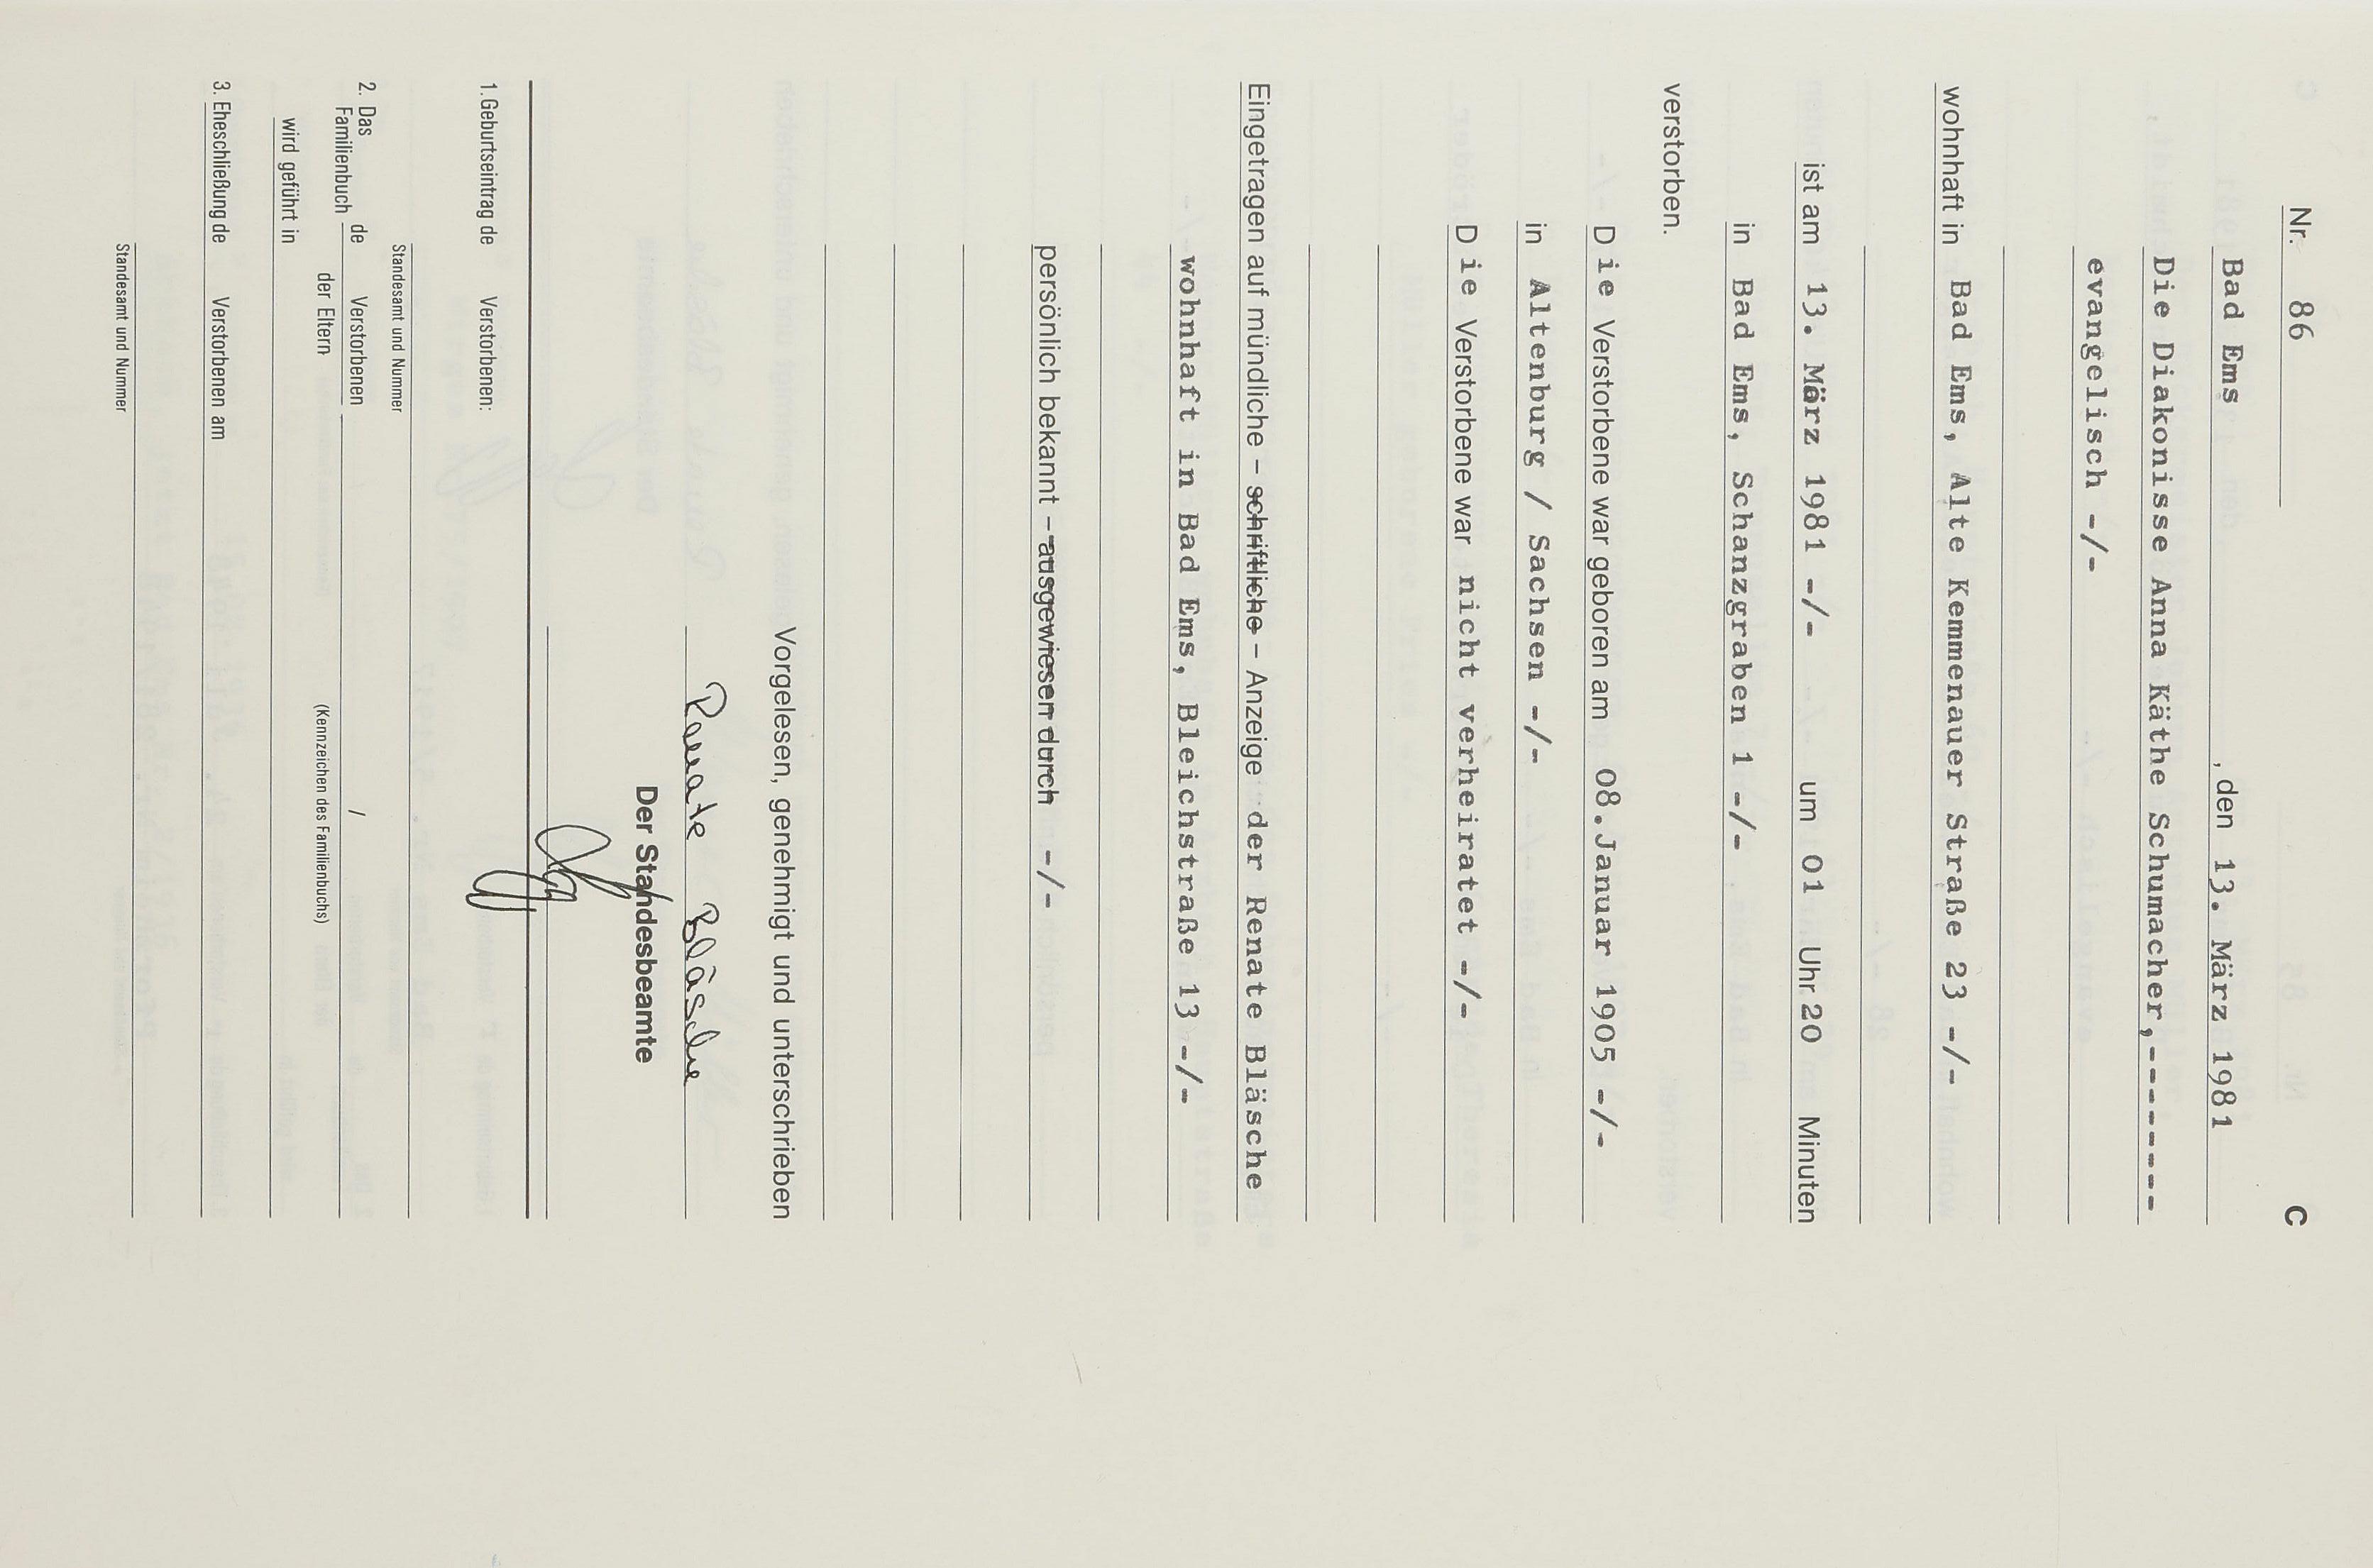 Nr. 86 C
Bad Ems, den 13. März 1981
Die Diakonisse Anna Käthe Schumacher,--------
evangelisch -/-
wohnhaft in Bad Ems, Alte Kemmenauer Straße 23 -/-
ist am 13. März 1981 -/- um 01 Uhr 20 Minuten
in Bad Ems, Schanzgraben 1 -/-
verstorben.
Die Verstorbene war geboren am 08.Januar 1905 -/-
in Altenburg / Sachsen -/-
Die Verstorbene war nicht verheiratet -/-
Eingetragen auf mündliche – schriftliche – Anzeige der Renate Bläsche
wohnhaft in Bad Ems, Bleichstraße 13 -/-
persönlich bekannt – ausgewiesen durch -/-
Vorgelesen, genehmigt und unterschrieben
Renate Bläsche
Der Standesbeamte
1. Geburtseintrag de Verstorbenen:
Standesamt und Nummer
2. Das Familienbuch de Verstorbenen /
der Eltern (Kennzeichen des Familienbuchs)
wird geführt in
3. Eheschließung de Verstorbenen am
Standesamt und Nummer